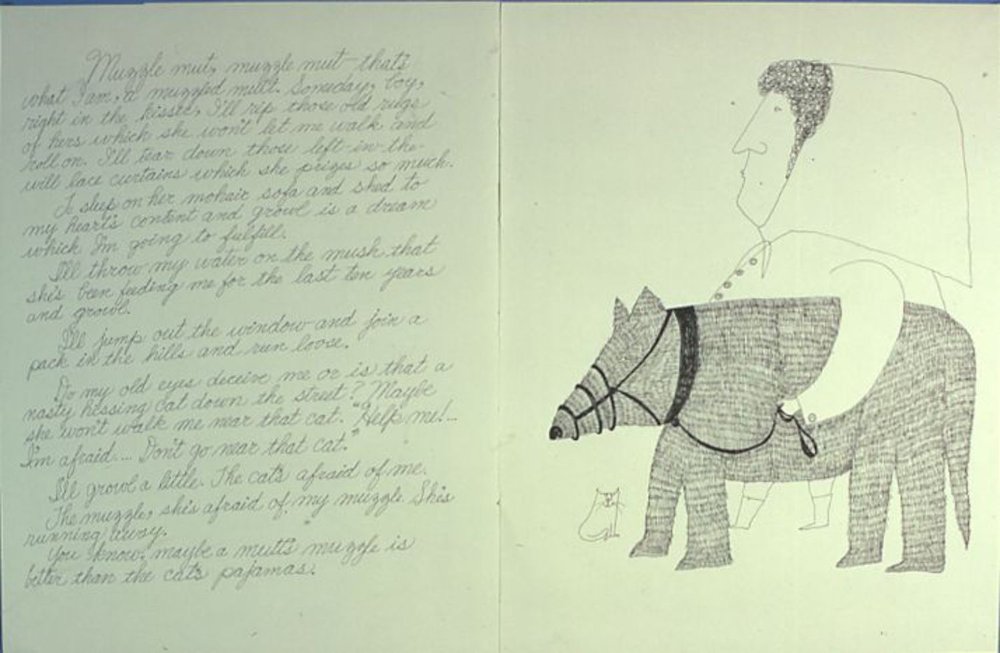 Muzzle mut, muzzle mut - that's
what I am, a muzzled mutt. Someday, boy,
right in the kisser, I'll rip those old rugs
of hers which she won't let me walk and
roll on. I'll tear down those left-in-the-
will lace curtains which she prizes so much.
To sleep on her mohair sofa and shed to
my heart's content and growl is a dream
which I'm going to fulfill.
I'll throw my water on the mush that
she's been feeding me for the last ten years
and growl.
I'll jump out the window and join a
pack in the hills and run loose.
Do my old eyes deceive me or is that a
nasty hissing cat down the street? Maybe
she won't walk me near that cat. "Help me!...
I'm afraid.... Don't go near that cat."
I'll growl a little. The cat's afraid of me.
The muzzle, she's afraid of my muzzle. She's
running away.
You know, maybe a mutt's muzzle is
better than the cat's pajamas.